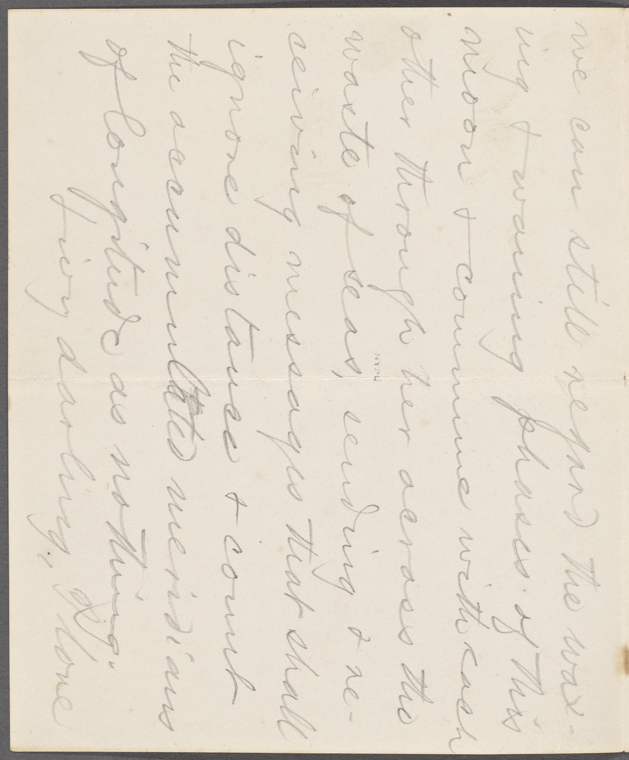 we can still regard the wax-
ing & waning phases of this
moon & commune with each
other through her across the
waste of seas, sending & re-
ceiving messages that shall
ignore distance & count
the accumulated meridians
of longitude as nothing."
Livy darling, I love